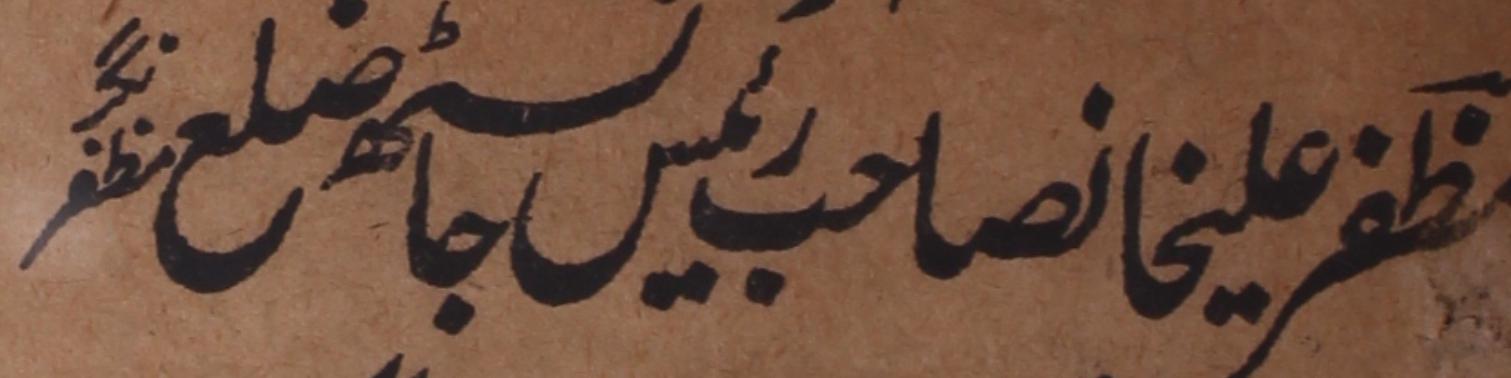 ظفر علیخانصاحب رئیس جانسٹھ ضلع مظفر نگر